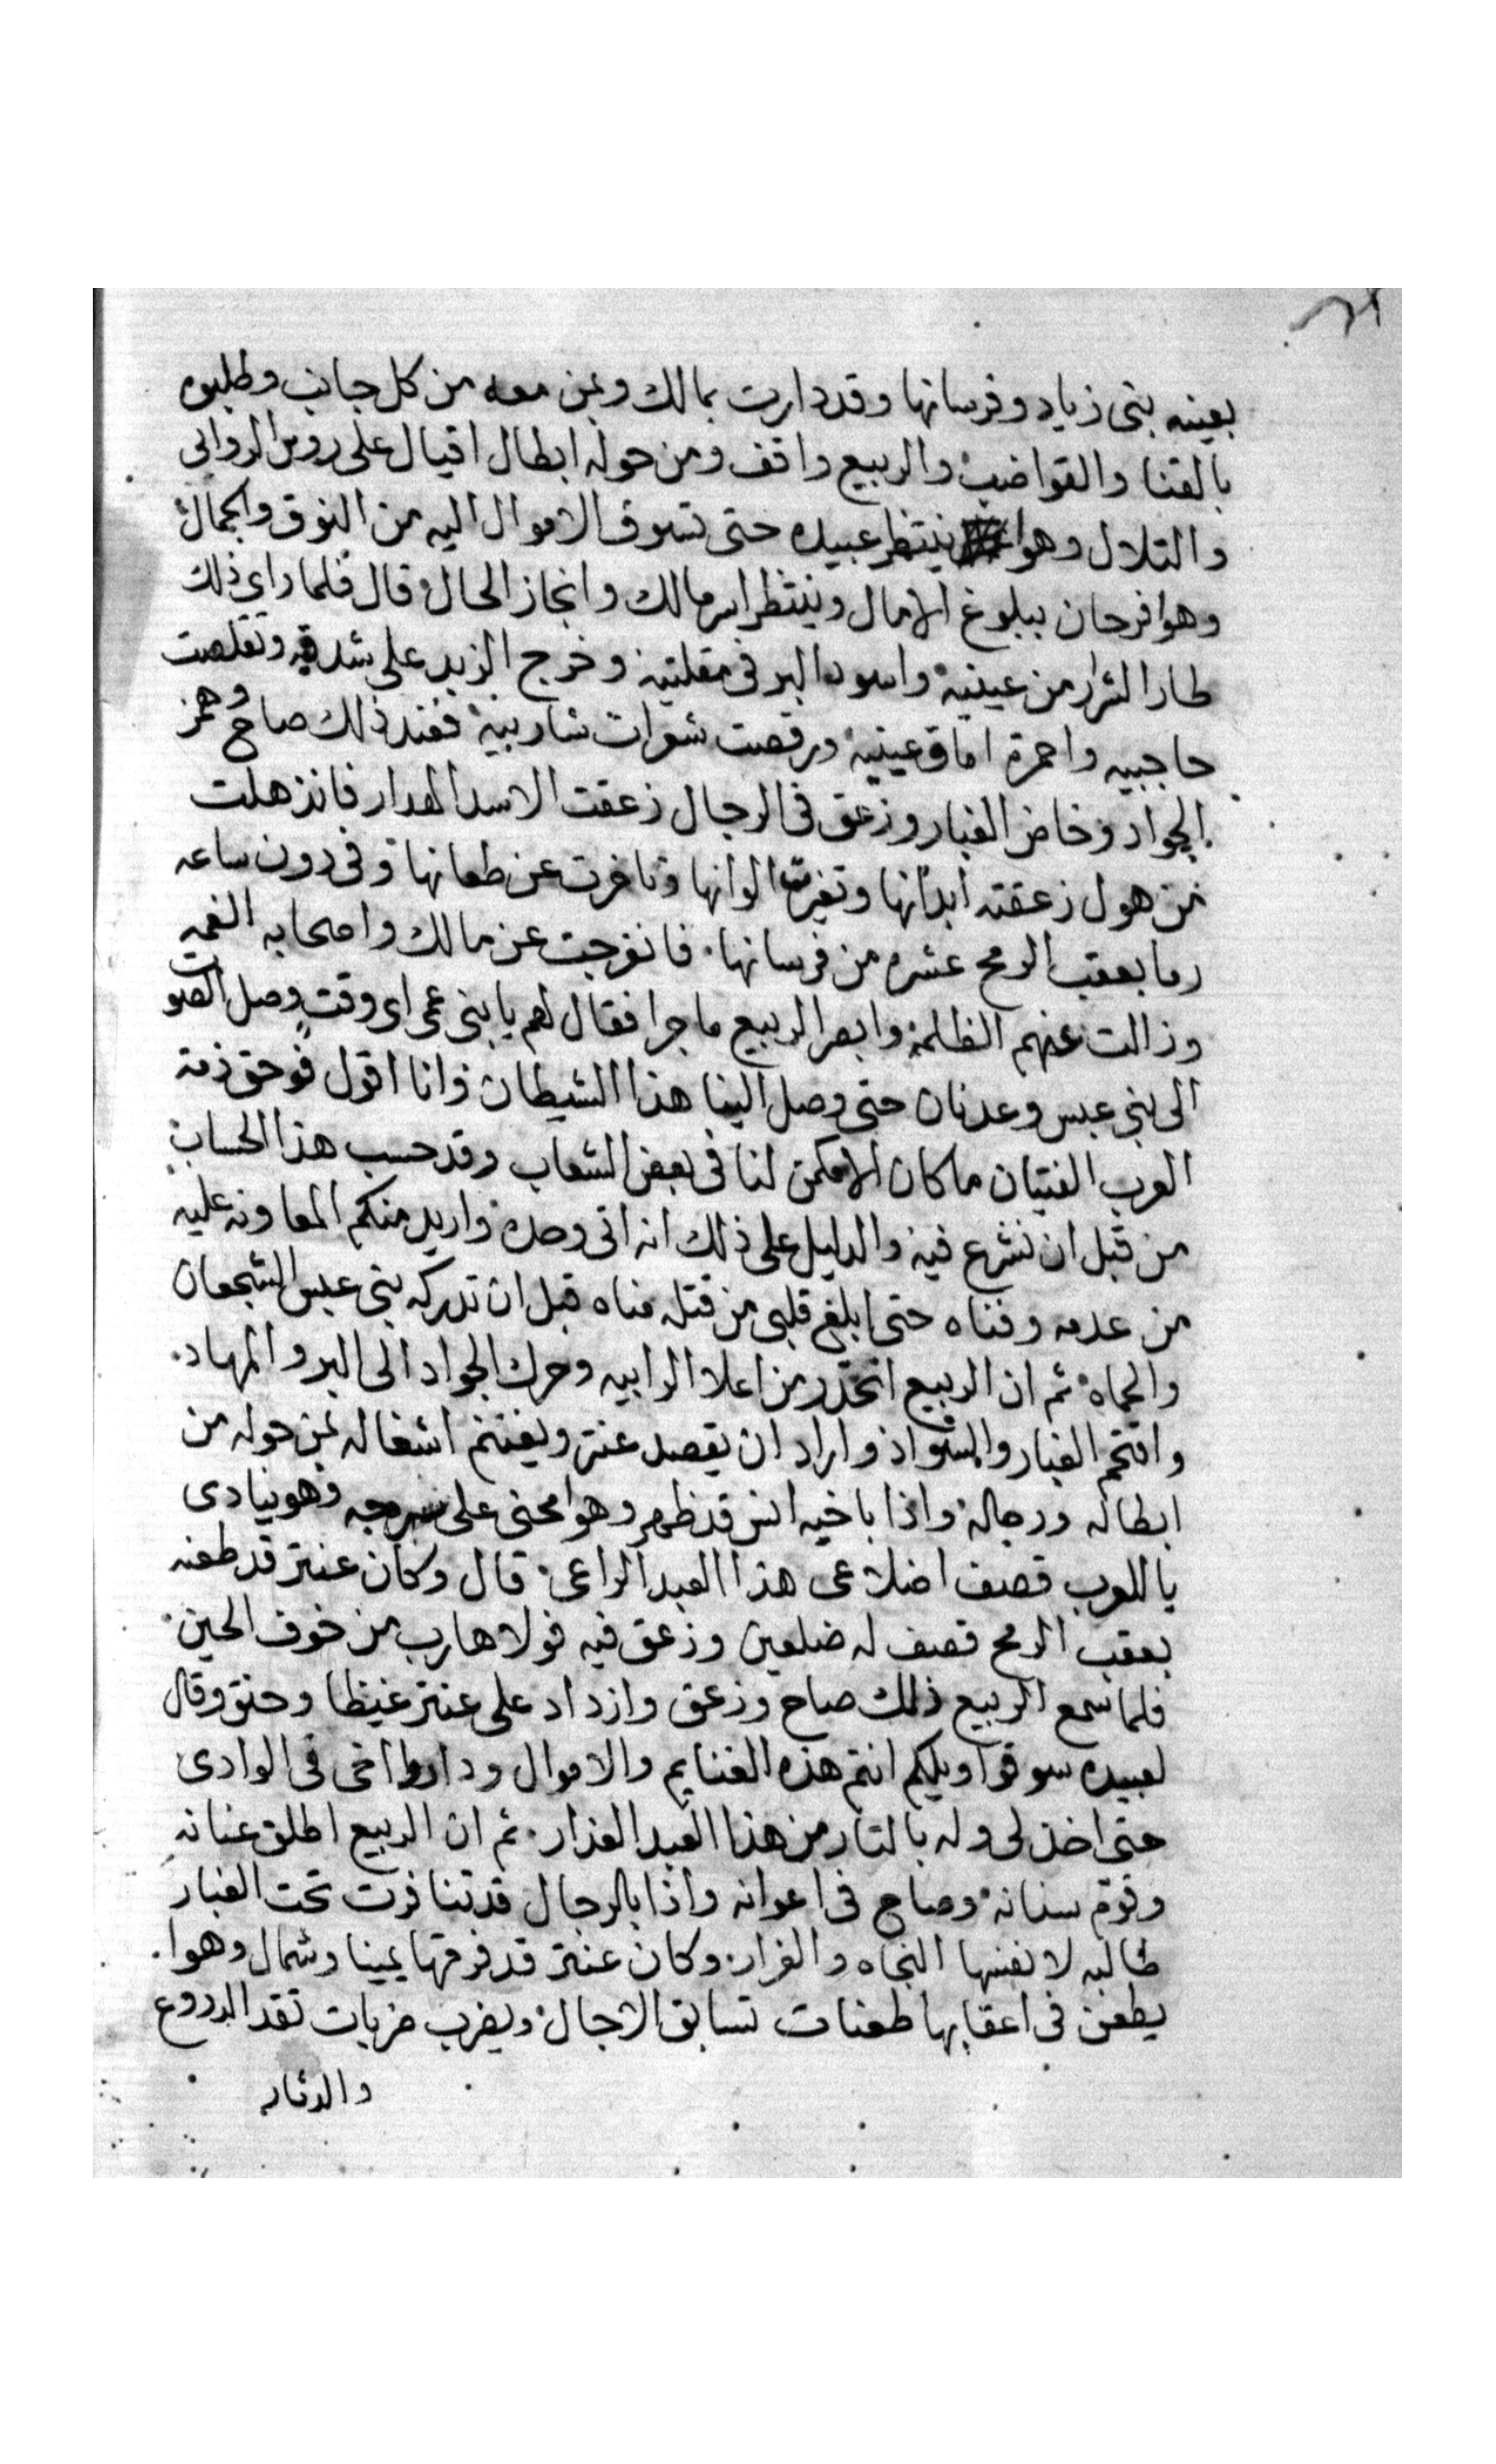 بعينه بنى زياد وفرسانها وقد دارت بمالك وبمن معه من كل جانب وطلبوه
بالقنا والقواضب والربيع واقف ومن حوله ابطال اقيال على روس الروابي
والتلال وهوا ينتظر عبيده حتى تسوق الاموال اليه من النوق والجمال
وهوا فرحان ببلوغ الامال وينتظر اسر مالك وانجاز الحال قال فلما راي ذلك
طار الشرار من عينيه واسود البر فى مقلتيه وخرج الزبد على شدقيه وتقلصت
حاجبيه واحمرة اماق عينيه ورقصت شعرات شاربيه فعند ذلك صاح وهمز
الجواد وخاض الغبار وزعق فى الرجال زعقت الاسد الهدار فانذهلت
من هول زعقته ابدانها وتغيرت الوانها وتاخرت عن طعانها وفى دون ساعه
رما بعقب الرمح عشره من فرسانها فانفرجت عن مالك واصحابه الغمه
وزالت عنهم الظلمه وابصر الربيع ما جرا فقال لهم يا بنى عمى اى وقت وصل الصوت
الى بنى عبس وعدنان حتى وصل الينا هذا الشيطان وانا اقول فوحق ذمة
العرب الفتيان ما كان الا مكمن لنا فى بعض الشعاب وقد حسب هذا الحساب
من قبل ان نشرع فيه والدليل على ذلك انه اتى وحده واريد منكم المعاونه عليه
من عدمه وفناه حتى ابلغ قلبى من قتله مناه قبل ان تدركه بنى عبس الشجعان
والحماه ثم ان الربيع اتحدر من اعلا الرابيه وحرك الجواد الى البر والمهاد
واقتحم الغبار والسواد واراد ان يقصد عنتر ويغتنم اشغاله بمن حوله من
ابطاله ورجاله واذا باخيه انس قد ظهر وهوا محنى على سرجه وهو ينادى
يا للعرب قصف اضلاعى هذا العبد الراعى قال وكان عنتر قد طعنه
بعقب الرمح قصف له ضلعين وزعق فيه فولا هارب من خوف الحين
فلما سمع الربيع ذلك صاح وزعق وازداد على عنتر غيظا وحنق وقال
لعبيده سوقوا ويلكم انتم هذه الغنايم والاموال وداروا اخى فى الوادى
حتى اخذ لى وله بالتار من هذا العبد الغدار ثم ان الربيع اطلق عنانه
وقوم سنانه وصاح فى اعوانه واذا بالرجال قد تنافرت تحت الغبار
طالبه لانفسها النجاه والفرار وكان عنتر قد فرقها يمينا وشمال وهوا
يطعن فى اعقابها طعنات تسابق الاجال ويضرب ضربات تقد الدروع
والدثار